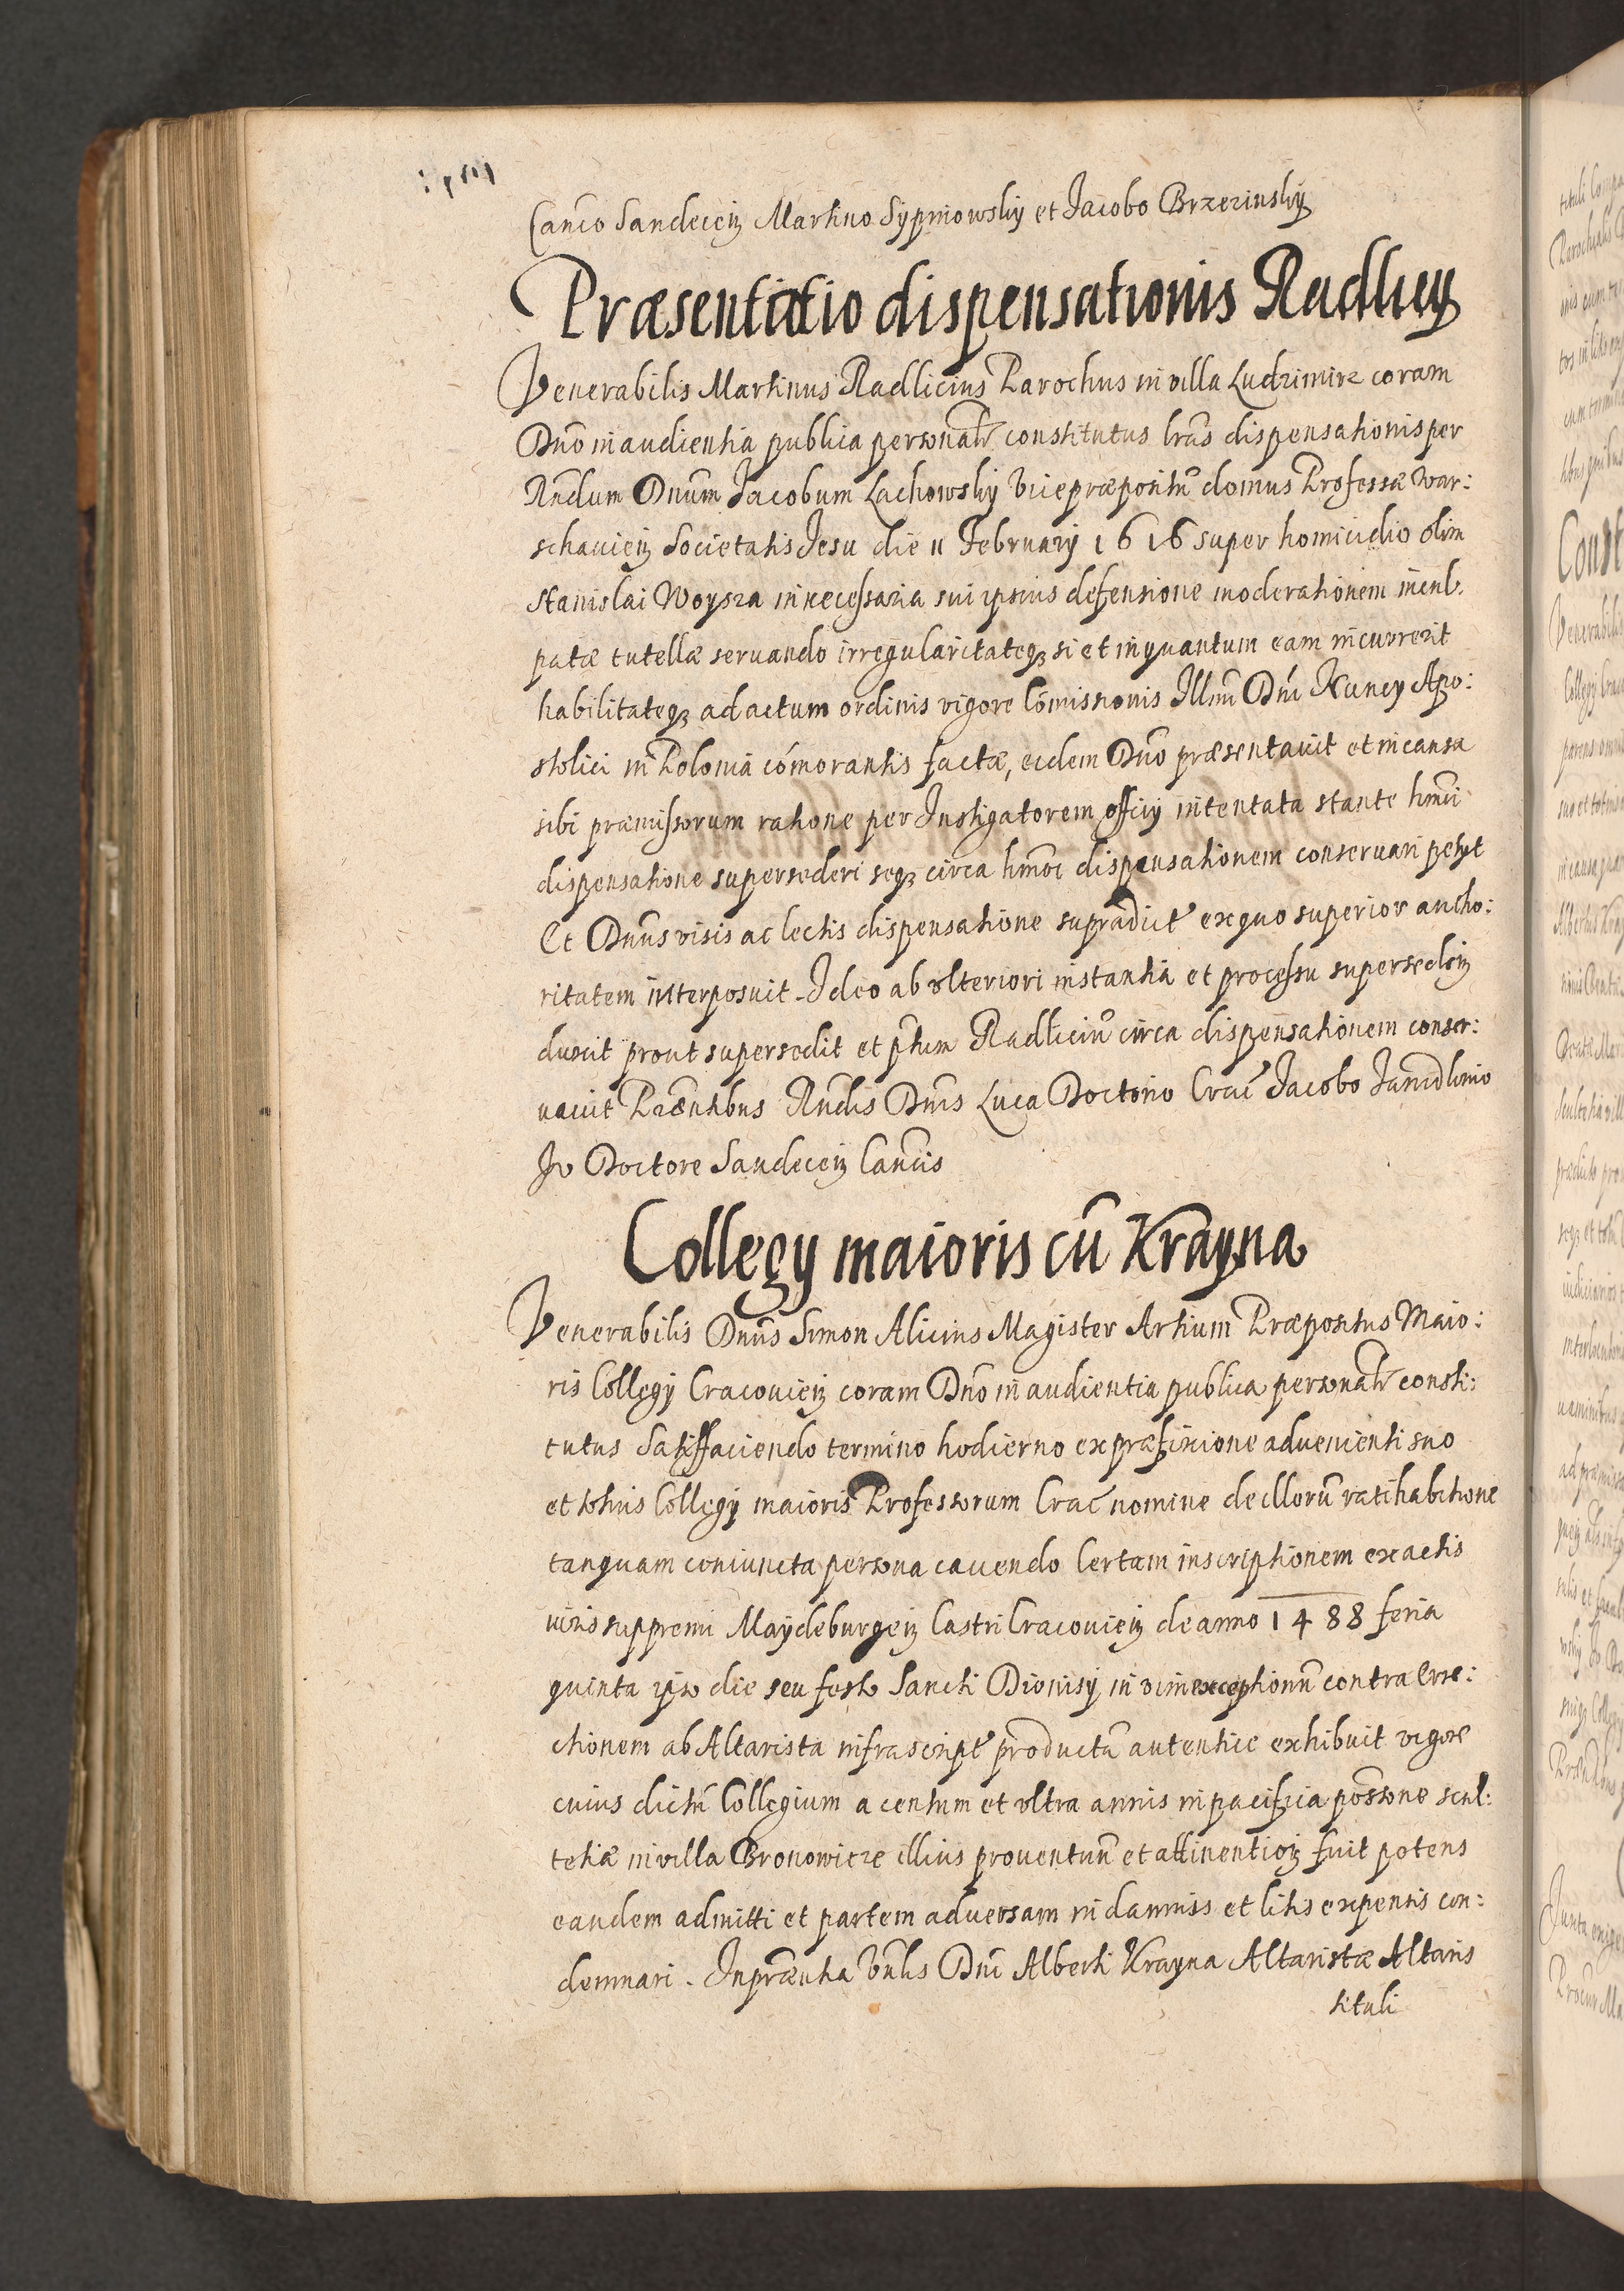 Canco Sandecen Martino Sypniowsky et Jacobo Brzezinsky
Præsentatio dispensationis Radlicy
Venerabilis Martinus Radlicius Parochus in villa Ludzimirz coram
Dno in audientia publica personalr constitutus lras dispensationis per
Rndum Dnum Jacobum Lachowsky Vicepræpositu domus Professæ War:
schavien Societatis Jesu die 11 February 1616 super homicidio olim
Stanislai Woysza in necessaria sui ipsius defensione moderationem incul.
patæ tutellæ servando irregularitateq si et in quantum eam incurrerit
habilitateq ad actum ordinis vigore Comissionis Illmi Dni Nuncy Apo:
stolici in Polonia comorantis factæ, eidem Dno præsentavit et in causa
sibi præmissorum ratione per Instigatorem officy intentata stante hmoi
dispensatione supersederi seq circa hmoi dispensationem conservari petyt
Et Dnus visis ac lectis dispensatione supradict ex quo superior autho:
ritatem interposuit. Ideo ab ulteriori instantia et processu superseden
duxit prout supersedit et phm Radliciu circa dispensationem conser:
vavit Præntibus Rndis Dnis Luca Doctorio Crac Jacobo Janidlovio
Jv Doctore Sandecen Cancis
Collegy maioris cu Krayna
Venerabilis Dnus Simon Alicius Magister Artium Præpositus Maio:
ris Collegy Cracovien coram Dno in audientia publica personalr consti:
tutus Satisfaciendo termino hodierno ex præfixione advenienti suo
et totius Collegy maioris Professorum Crac nomine de illoru ratihabitione
tanquam coniuncta persona cavendo Certam inscriptionem ex actis
iuris suppremi Maydeburgen Castri Cracovien de anno 1488 feria
quinta ipso die seu festo Sancti Dionisy in vim exceptionu contra Erec:
ctionem ab Altarista infrascript producta autentice exhibuit vigore
cuius dictu Collegium a centum et ultra annis in pacifica possone scul:
tetiæ in villa Bronowicze illius proventuu et attinention fuit potens
eandem admitti et partem adversam in damnis et litis expensis con:
demnari. In præntia Vnlis Dni Alberti Krayna Altaristæ Altaris
tituli